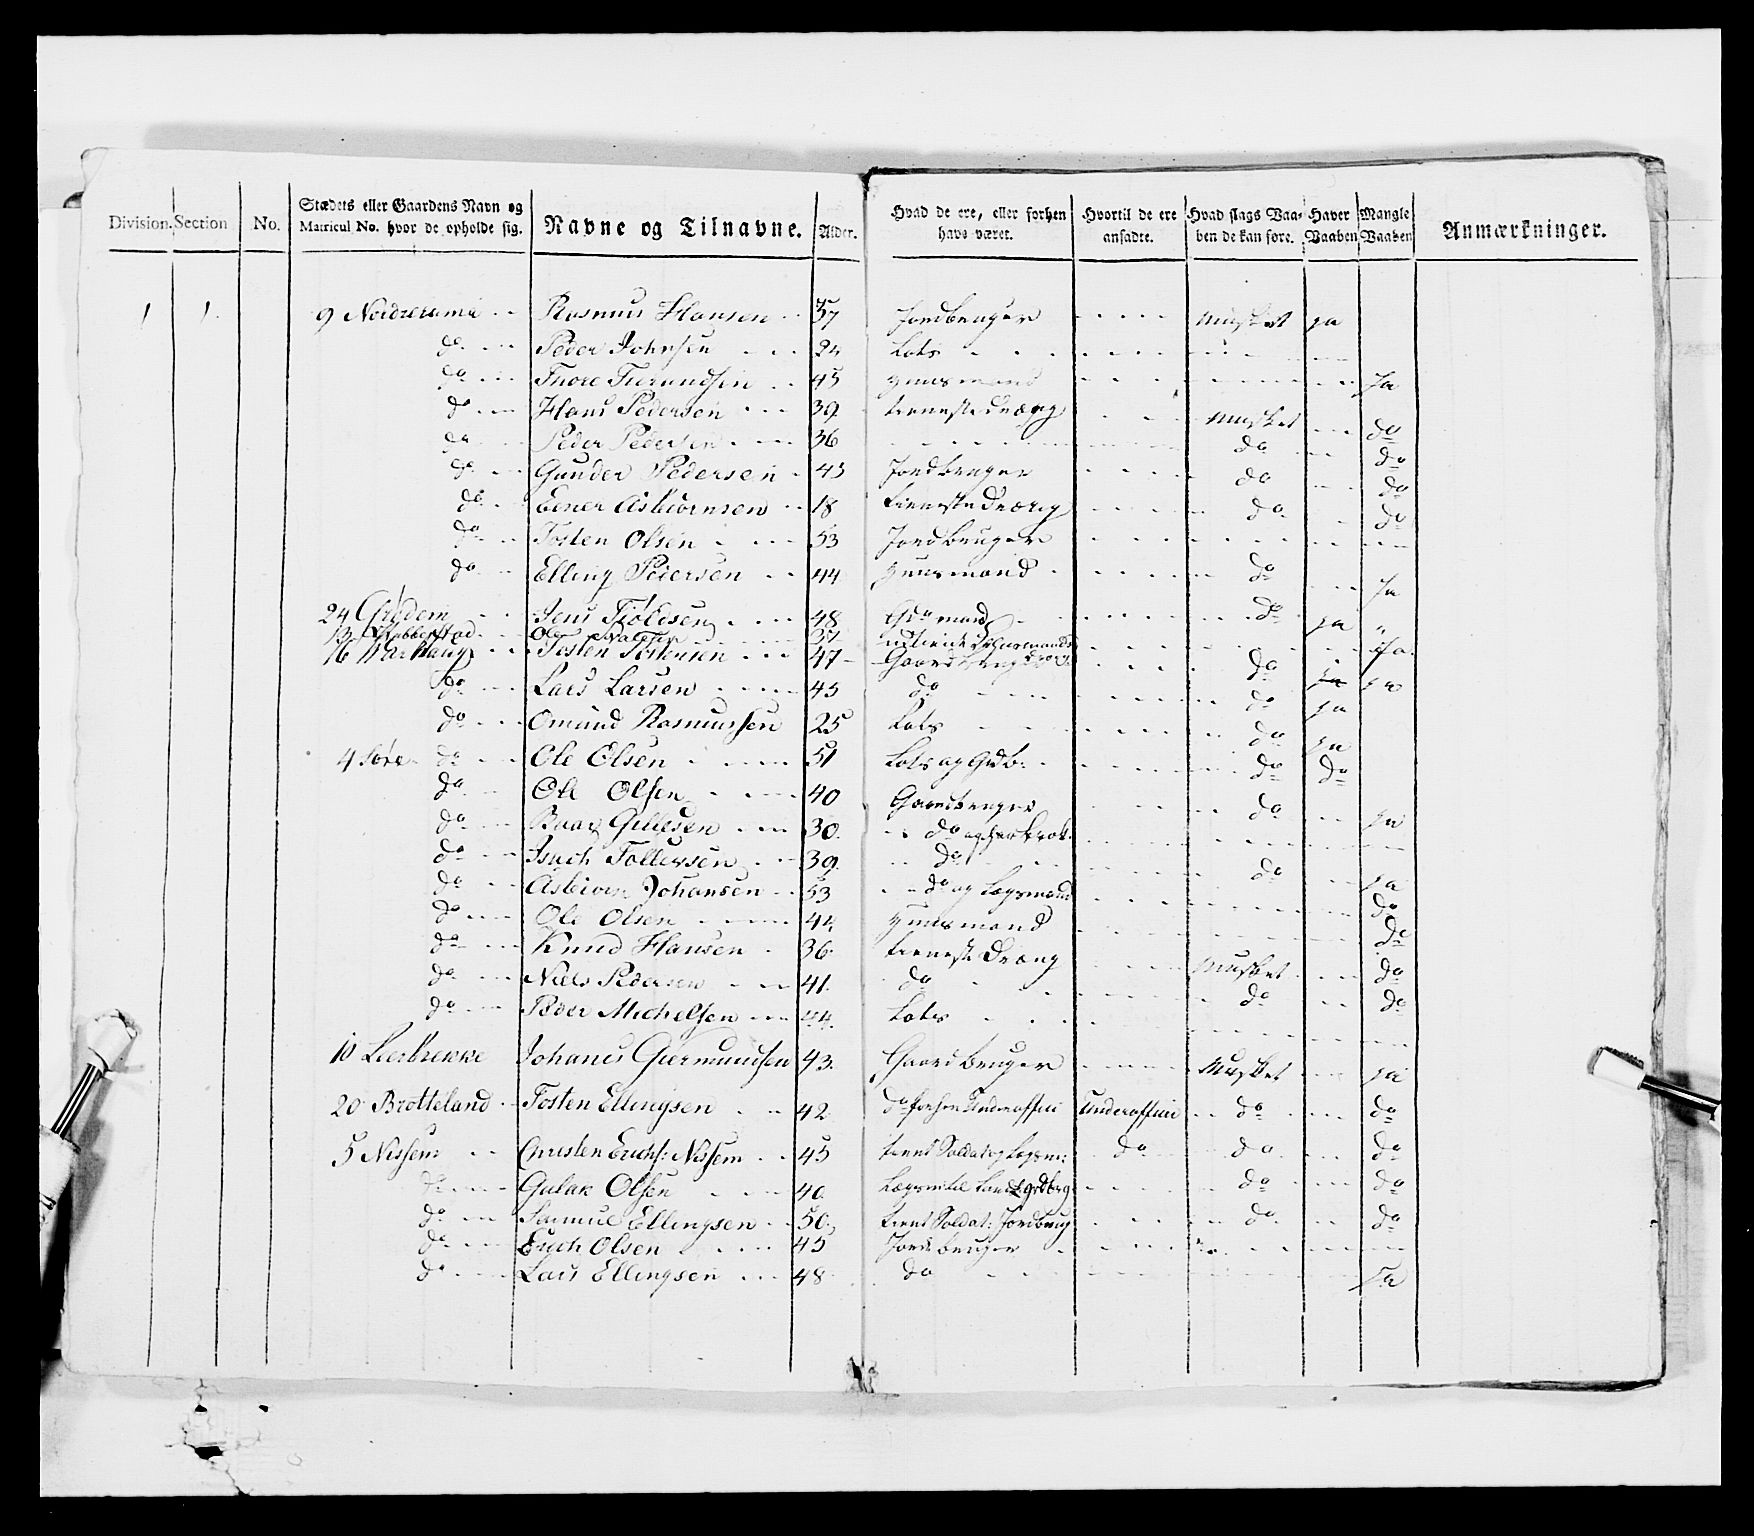 Division. Section No. Stædets eller Gaardens Navn og Matricul No. hvor de opholde sig. Navne og Tilnavne. Alder. Hvad de ere, eller forhen havs været. Hvortil de ere ansadte. Hvad slags Vaaben de kan føre. Haver Vaaben Mangle Vaaben Anmærkninger.
1 1. 9 Rasmus Hansen 37 Jordbruger Musket ja
do Peder Johnsen 24 Lots
do Thore 45 Huusmand Ja
do Hans Pedersen 39 tienestedræng Musket do
do Peder Pedersen 36 do do
do Gunder Pedersen 43 Jordbruger do do
do Eener Asbiörnsen 18 tienestedræng do do
do Tosten Olsen 53 Jordbruger
do Elling Pedersen 44 Huusmand do Ja
24 Grödem Jens Tiöldsen 48 Gdsmand do ja
13 Ole 37 Ja
16 Warhaug Tosten Tostensen 47 do
do Lars Larsen 45 do do ja
do Omund Rasmussen 25 Lots do ja
4 Søre do Ole Olsen 51 Lots og Grdb: do do
do Ole Olsen 40 Gaardbruger do ja
do 30 do
do Isach Tollevsen 39 do do ja
do Asbiörn Johansen 53 do og Lægsmand do
do Ole Olsen 44 Huusmand do
do Knud Hansen 36 tieneste Dræng Musket do
do Niels Pedersen 41 do do do
do Peder Michelsen 44 Lots
10 Leerbrekke Johanes Giermundsen 43. Gaardbruger Musket ja
20 Brotteland Tosten Ellingsen 42 do forhen Underofficer Underofficer do do
5 Nissem Christen Erichs: Nissem 45 tient Soldat og Lægsm: do do do
do Gulak Olsen 40 do do
do Samuel Ellingsen 50 tient Soldat: Jordbrug do do
do Erich Olsen 45 Jordbruger
do Lars Ellingsen 48 do Ja